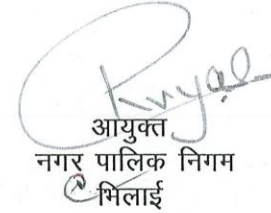 आयुक्त
नगर पालिक निगम
भिलाई